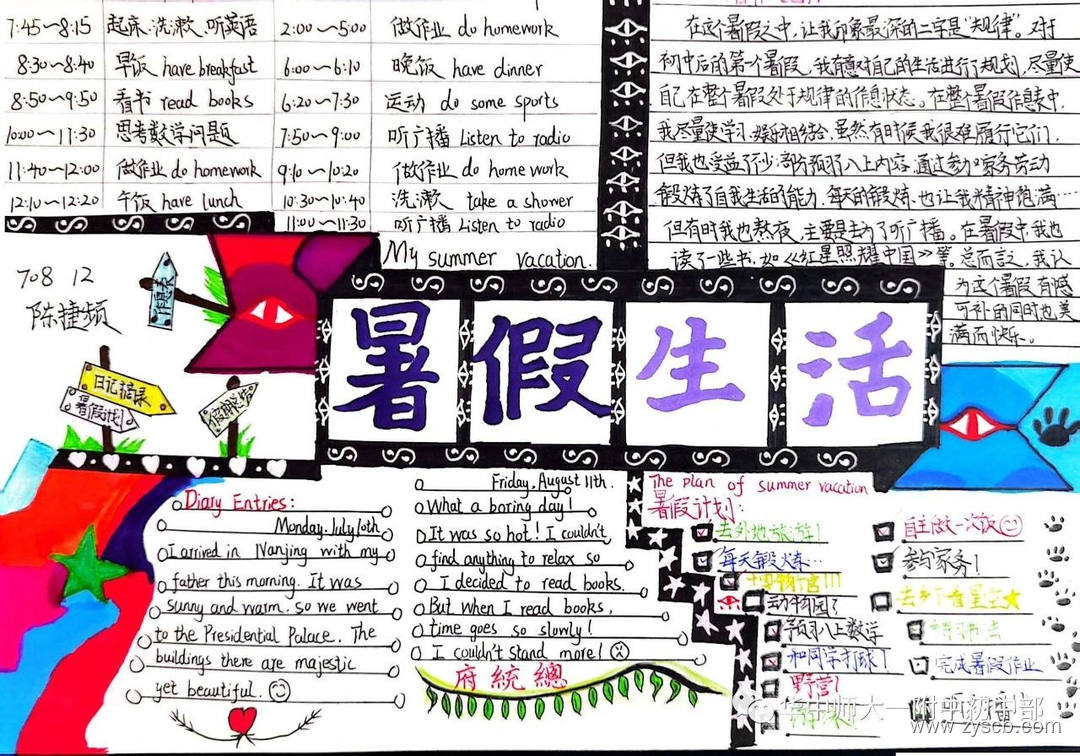 7:45～8:15 起床、洗漱、听英语 2:00～5:00 做作业 do homework
8:30～8:40 早饭 have breakfast 6:00～6:10 晚饭 have dinner
8:50～9:50 看书 read books 6:20～7:30 运动 do some sports
10:00～11:30 思考数学问题 7:50～9:00 听广播 Listen to radio
11:40～12:00 做作业 do homework 9:10～10:20 做作业 do home work
12:10～12:20 午饭 have lunch 10:30～10:40 洗漱 take a shower
11:00～11:30 听广播 Listen to radio
My summer vacation.
在这个暑假之中，让我印象最深的二字是“规律”。对
初中后的第一个暑假，我有意对自己的生活进行了规划，尽量使
自己在整个暑假处于规律的作息状态。在整个暑假作息表中，
我尽量使学习、娱乐相结合，虽然有时候我很难履行它们，
但我也受益了不少：部分预习八上内容，通过参加家务劳动
锻炼了自我生活的能力，每天的锻炼，也让我精神饱满……
但有时我也熬夜，主要是去为了听广播。在暑假中，我也
读了一些书，如《红星照耀中国》等。总而言之，我认
为这个暑假有憾
可补的同时也美
满而快乐。
708 12
陈捷频
作息表
日记摘录
暑假计划
暑假生活
Diary Entries:
Monday. July 10th
I arrived in Nanjing with my
father this morning. It was
sunny and warm. so we went
to the Presidential Palace. The
buildings there are majestic
yet beautiful.
Friday, August 11th.
What a boring day!
It was so hot! I couldn't
find anything to relax so
I decided to read books.
But when I read books,
time goes so slowly!
I couldn't stand more!
府統總
The plan of summer vacation
暑假计划:
去外地旅游!
每天锻炼…
动物园?
预习八上数学
和同学打球!
野营!
自主做一次饭
参与家务!
去乡下看星空
完成暑假作业
华中师大一附中初中部
www.zyscb.com